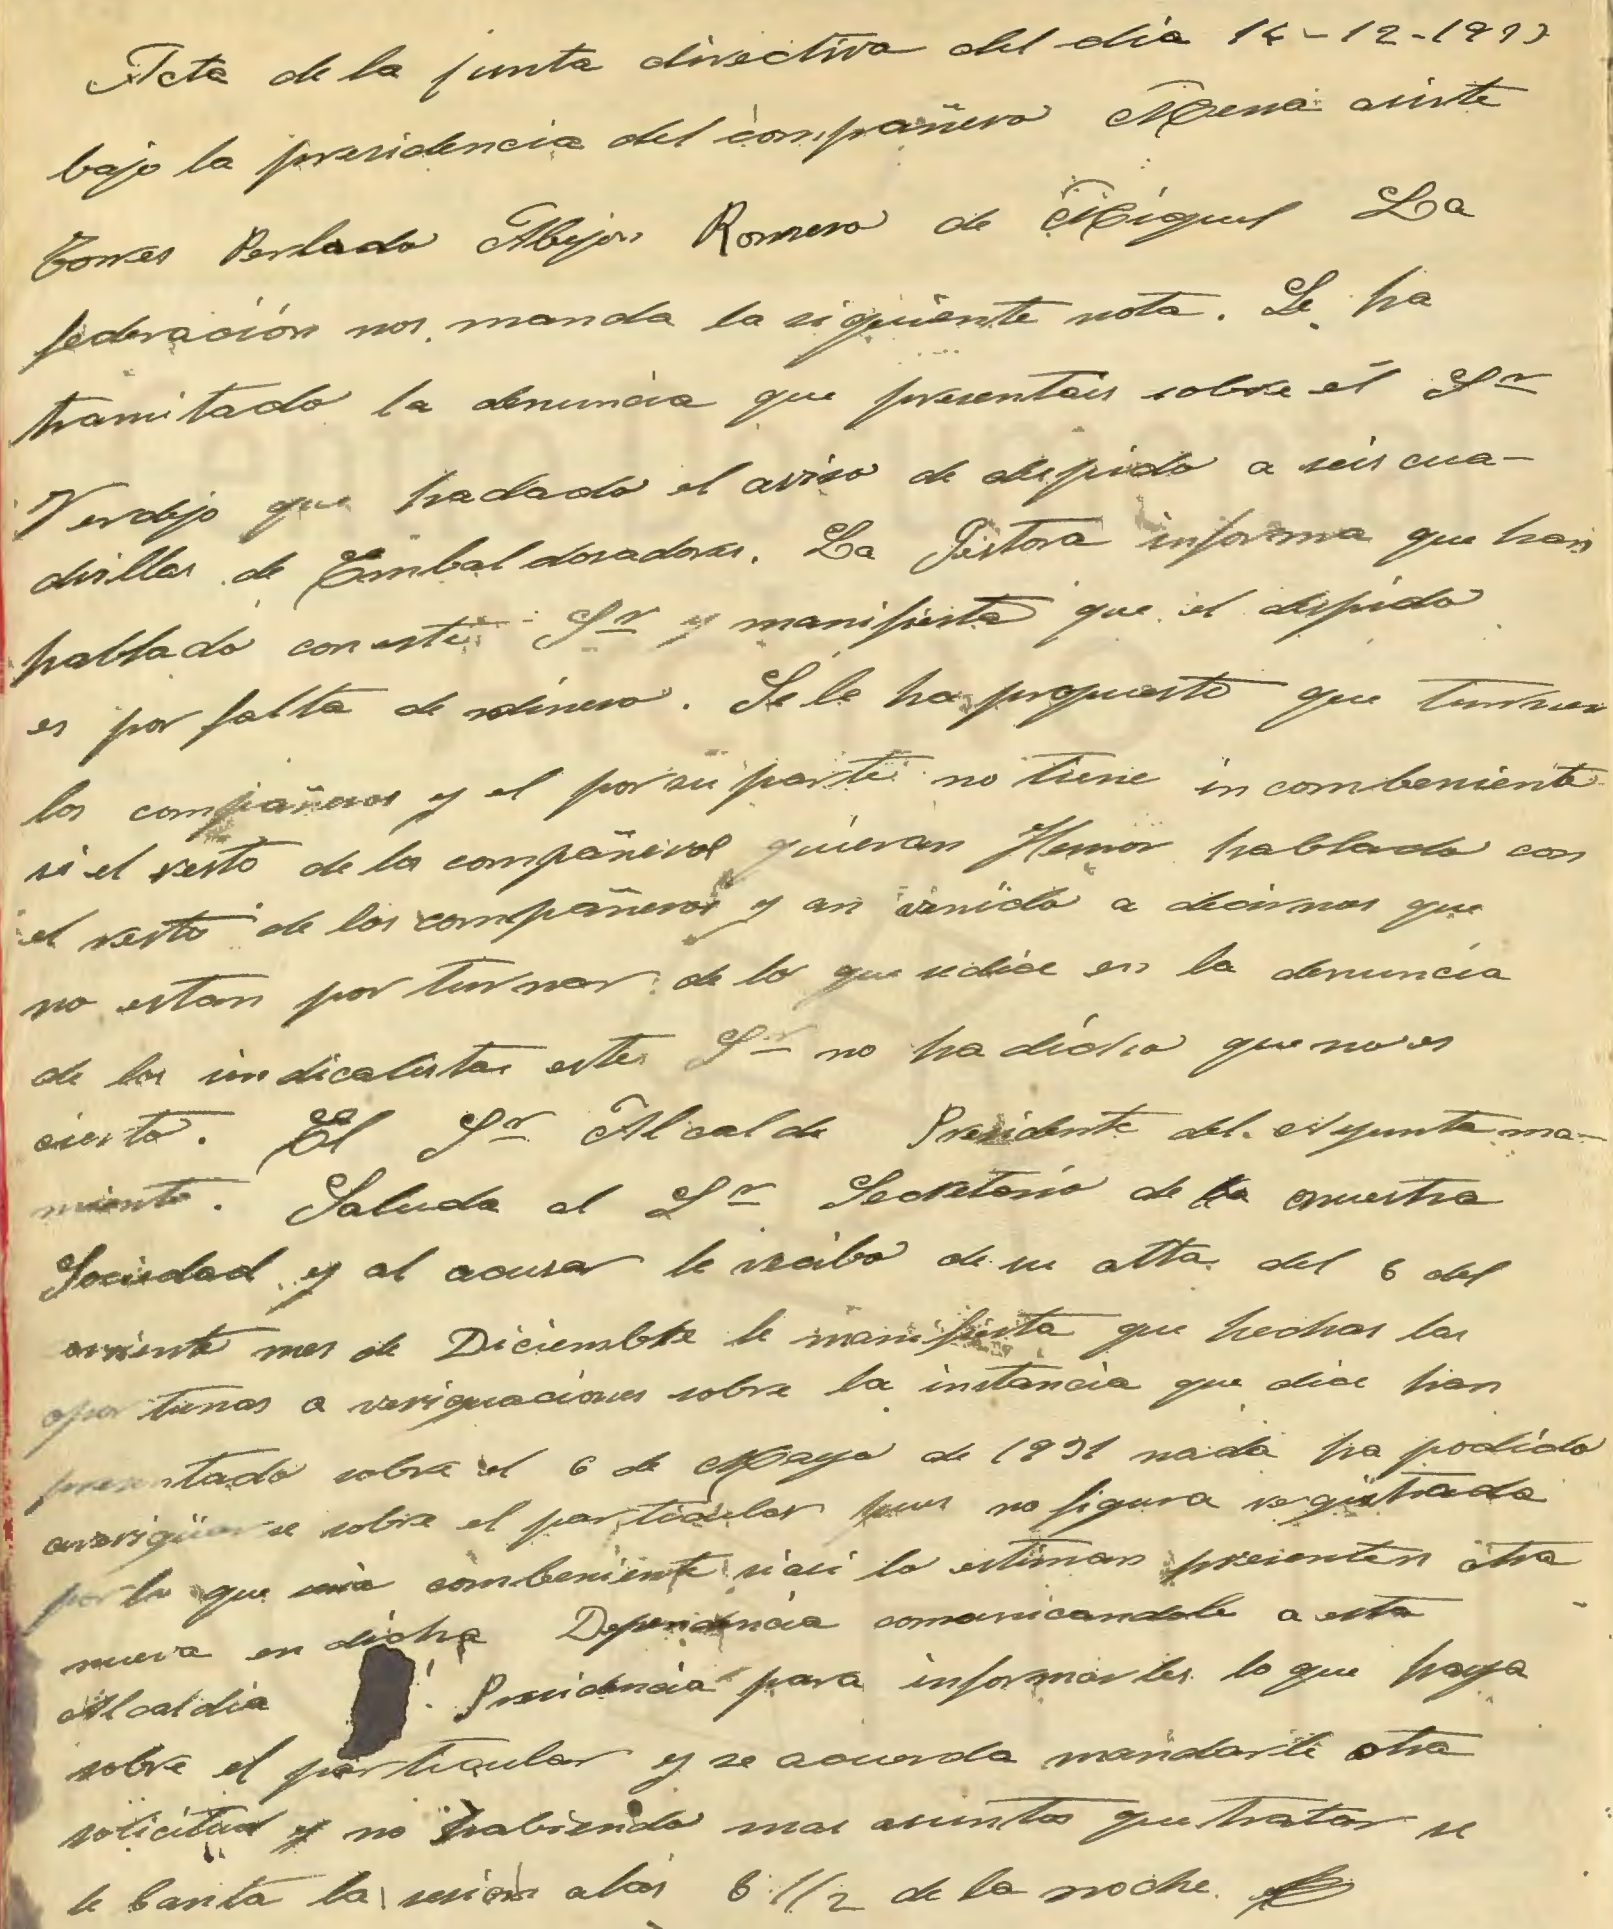 Acta de la junta directiva del dia 14-12-1933
bajo la presidencia del compañero Mena asiste
Torres Perlado Abejon Romero de Miguel La
federación nos manda la siguiente nota. Se ha
tramitado la denuncia que presentais sobre el Sr
Verdejo que hadado el aviso de despido a seis cua-
drillas de Embaldosadores. La Gestora informa que han
hablado con este Sr y manifiesta que el despido
es por falta de dinero. Se le ha propuesto que turnen
los compañeros y el por su parte no tiene incombeniente
si el resto de los compañeros quieran Hemos hablado con
el resto de los compañeros y an venido a decirnos que
no estan por turnar: de lo que se dice en la denuncia
de los sindicalistas este Sr no ha dicho que no es
cierto. El Sr Alcalde Presidente del Ayuntama-
miento. Saluda al Sr Secretario de la nuestra
Sociedad y al acusar le recibo de su atta. del 6 del
corriente mes de Diciembre le manifiesta que hechas las
oportunas a veriguaciones sobre la instancia que dice han
presentado sobre el 6 de Mayo de 1931 nada ha podido
averigüarse sobre el particular pues no figura registrada
por lo que seria combeniente si asi lo estiman presenten otra
nueva en dicha Dependencia comunicandole a esta
Alcaldia Presidencia para informarles lo que haya
sobre el particular y se acuerda mandarle otra
solicitud y no habiendo mas asuntos que tratar se
le banta la sesion a las 6 1/2 de la noche.